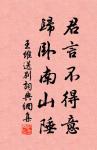 君言不得意
歸臥南山陲
王維送別詞典網集